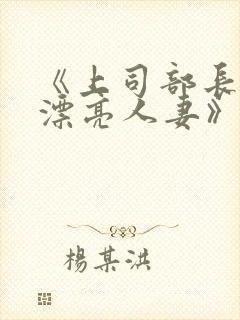 《上司部長
漂亮人妻》
楊某洪